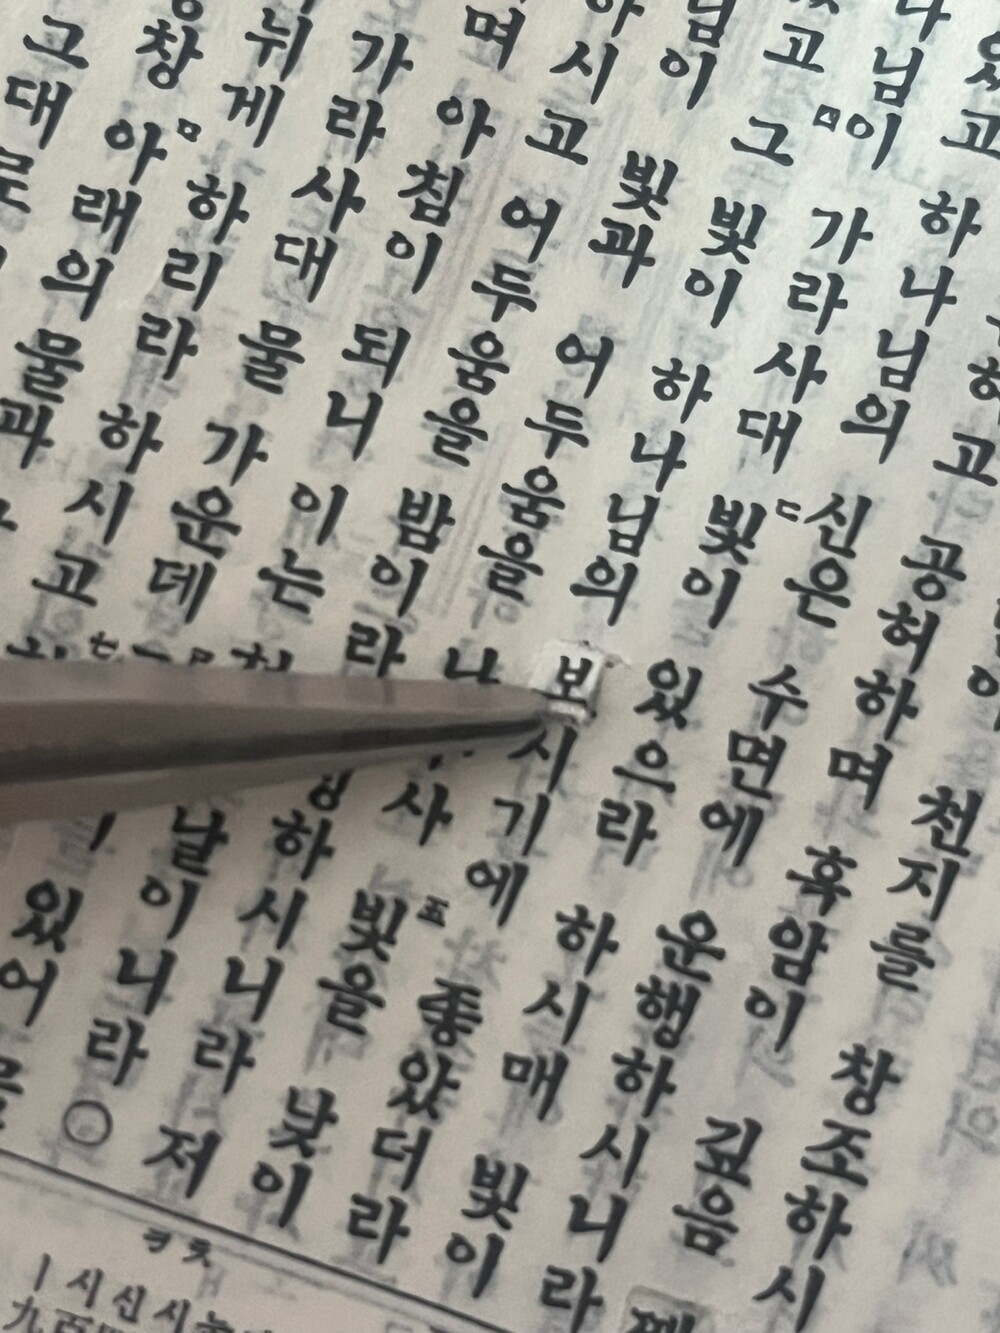 고 공허하며 흑암이 깊음
천지를 창조하시
있고 하나님의 신은 수면에 운행하시니라
나님이 가라사대 빛이 있으라 하시매 빛이
고 그 빛이 하나님의 보시기에 좋았더라
님이 빛과 어두움을 나 사 빛을 낮이
하시고 어두움을 밤이라 하시니라 저
며 아침이 되니 이는 날이니라 ○
가라사대 물 가운데 있어
뉘게 하리라 하시고
창 아래의 물과
그대로